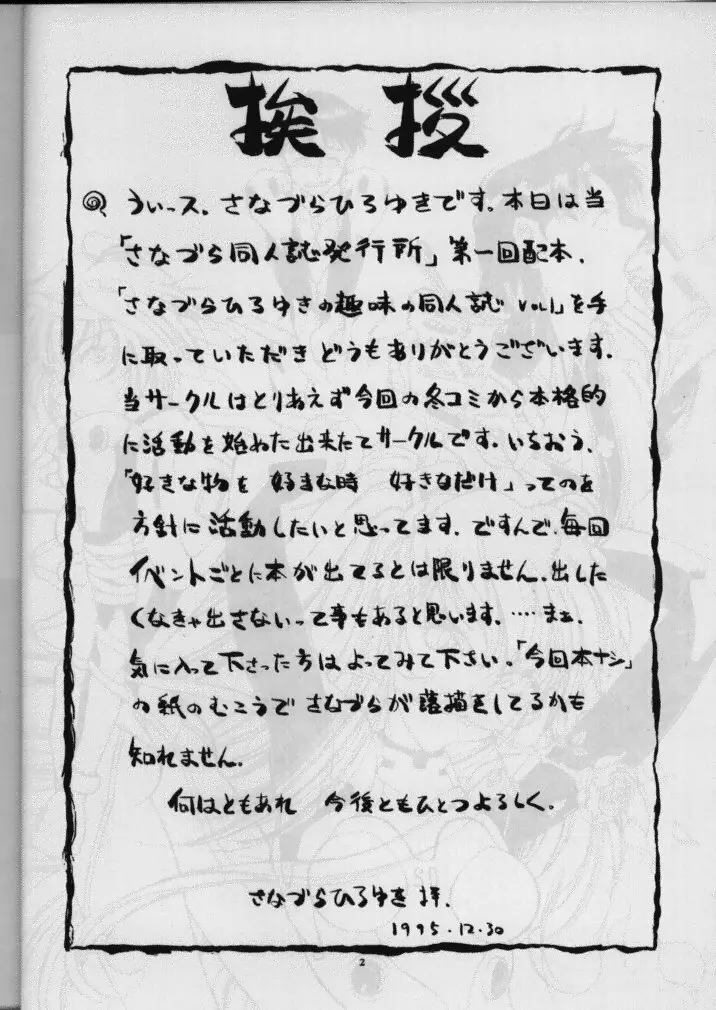 挨拶
うぃース．さなづらひろゆきです．本日は当
「さなづら同人誌発行所」第一回配本．
「さなづらひろゆきの趣味の同人誌 VOL1」を手
に取っていただき どうもありがとうございます．
当サークルはとりあえず今回の冬コミから本格的
に活動を始めた出来たてサークルです．いちおう．
「好きな物を 好きな時 好きなだけ」ってのを
方針に活動したいと思ってます．ですんで．毎回
イベントごとに本が出てるとは限りません．出した
くなきゃ出さないって事もあると思います．……まぁ．
気に入って下さった方はよってみて下さい．「今回本ナシ」
の紙のむこうで さなづらが落描をしてるかも
知れません．
何はともあれ 今後ともひとつよろしく．
さなづらひろゆき 拝．
1995.12.30
2